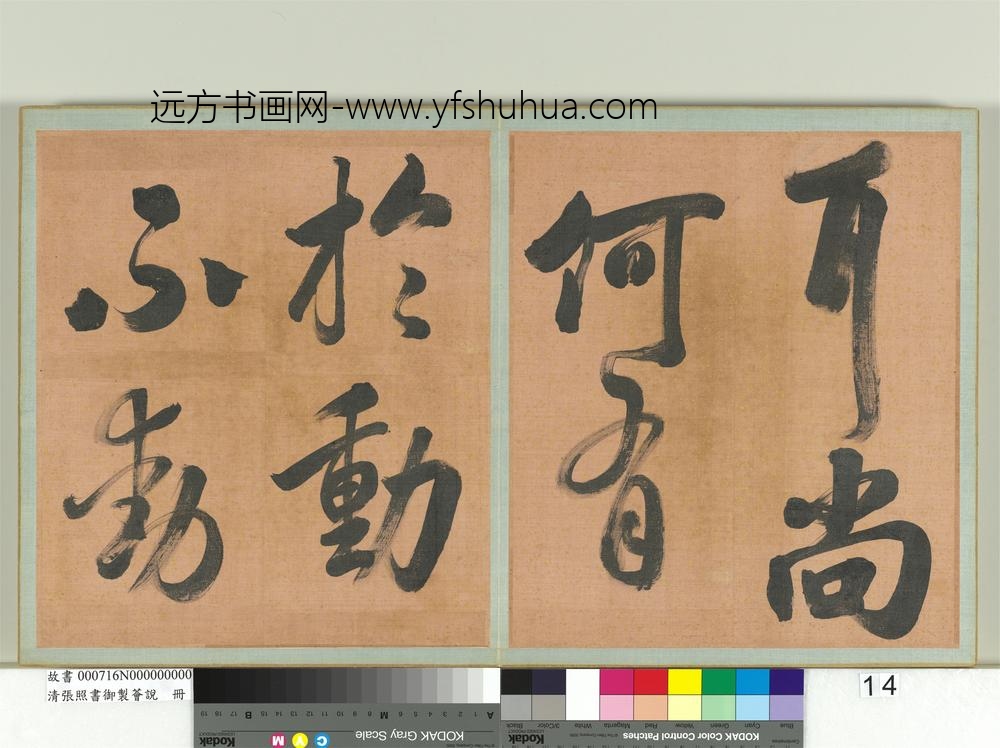 远方书画网-www.yfshuhua.com
耳尚
何有
於動
不動
故書 000716N000000000
清張照書御製薈說 冊
14
KODAK Gray Scale
Kodak
C
Y
M
A 1 2 3 4 5 6 M 8 9 10 11 12 13 14 15 B 17 18 19
KODAK Color Control Patches
Kodak
Blue
Cyan
Green
Yellow
Red
Magenta
White
3/Color
Black